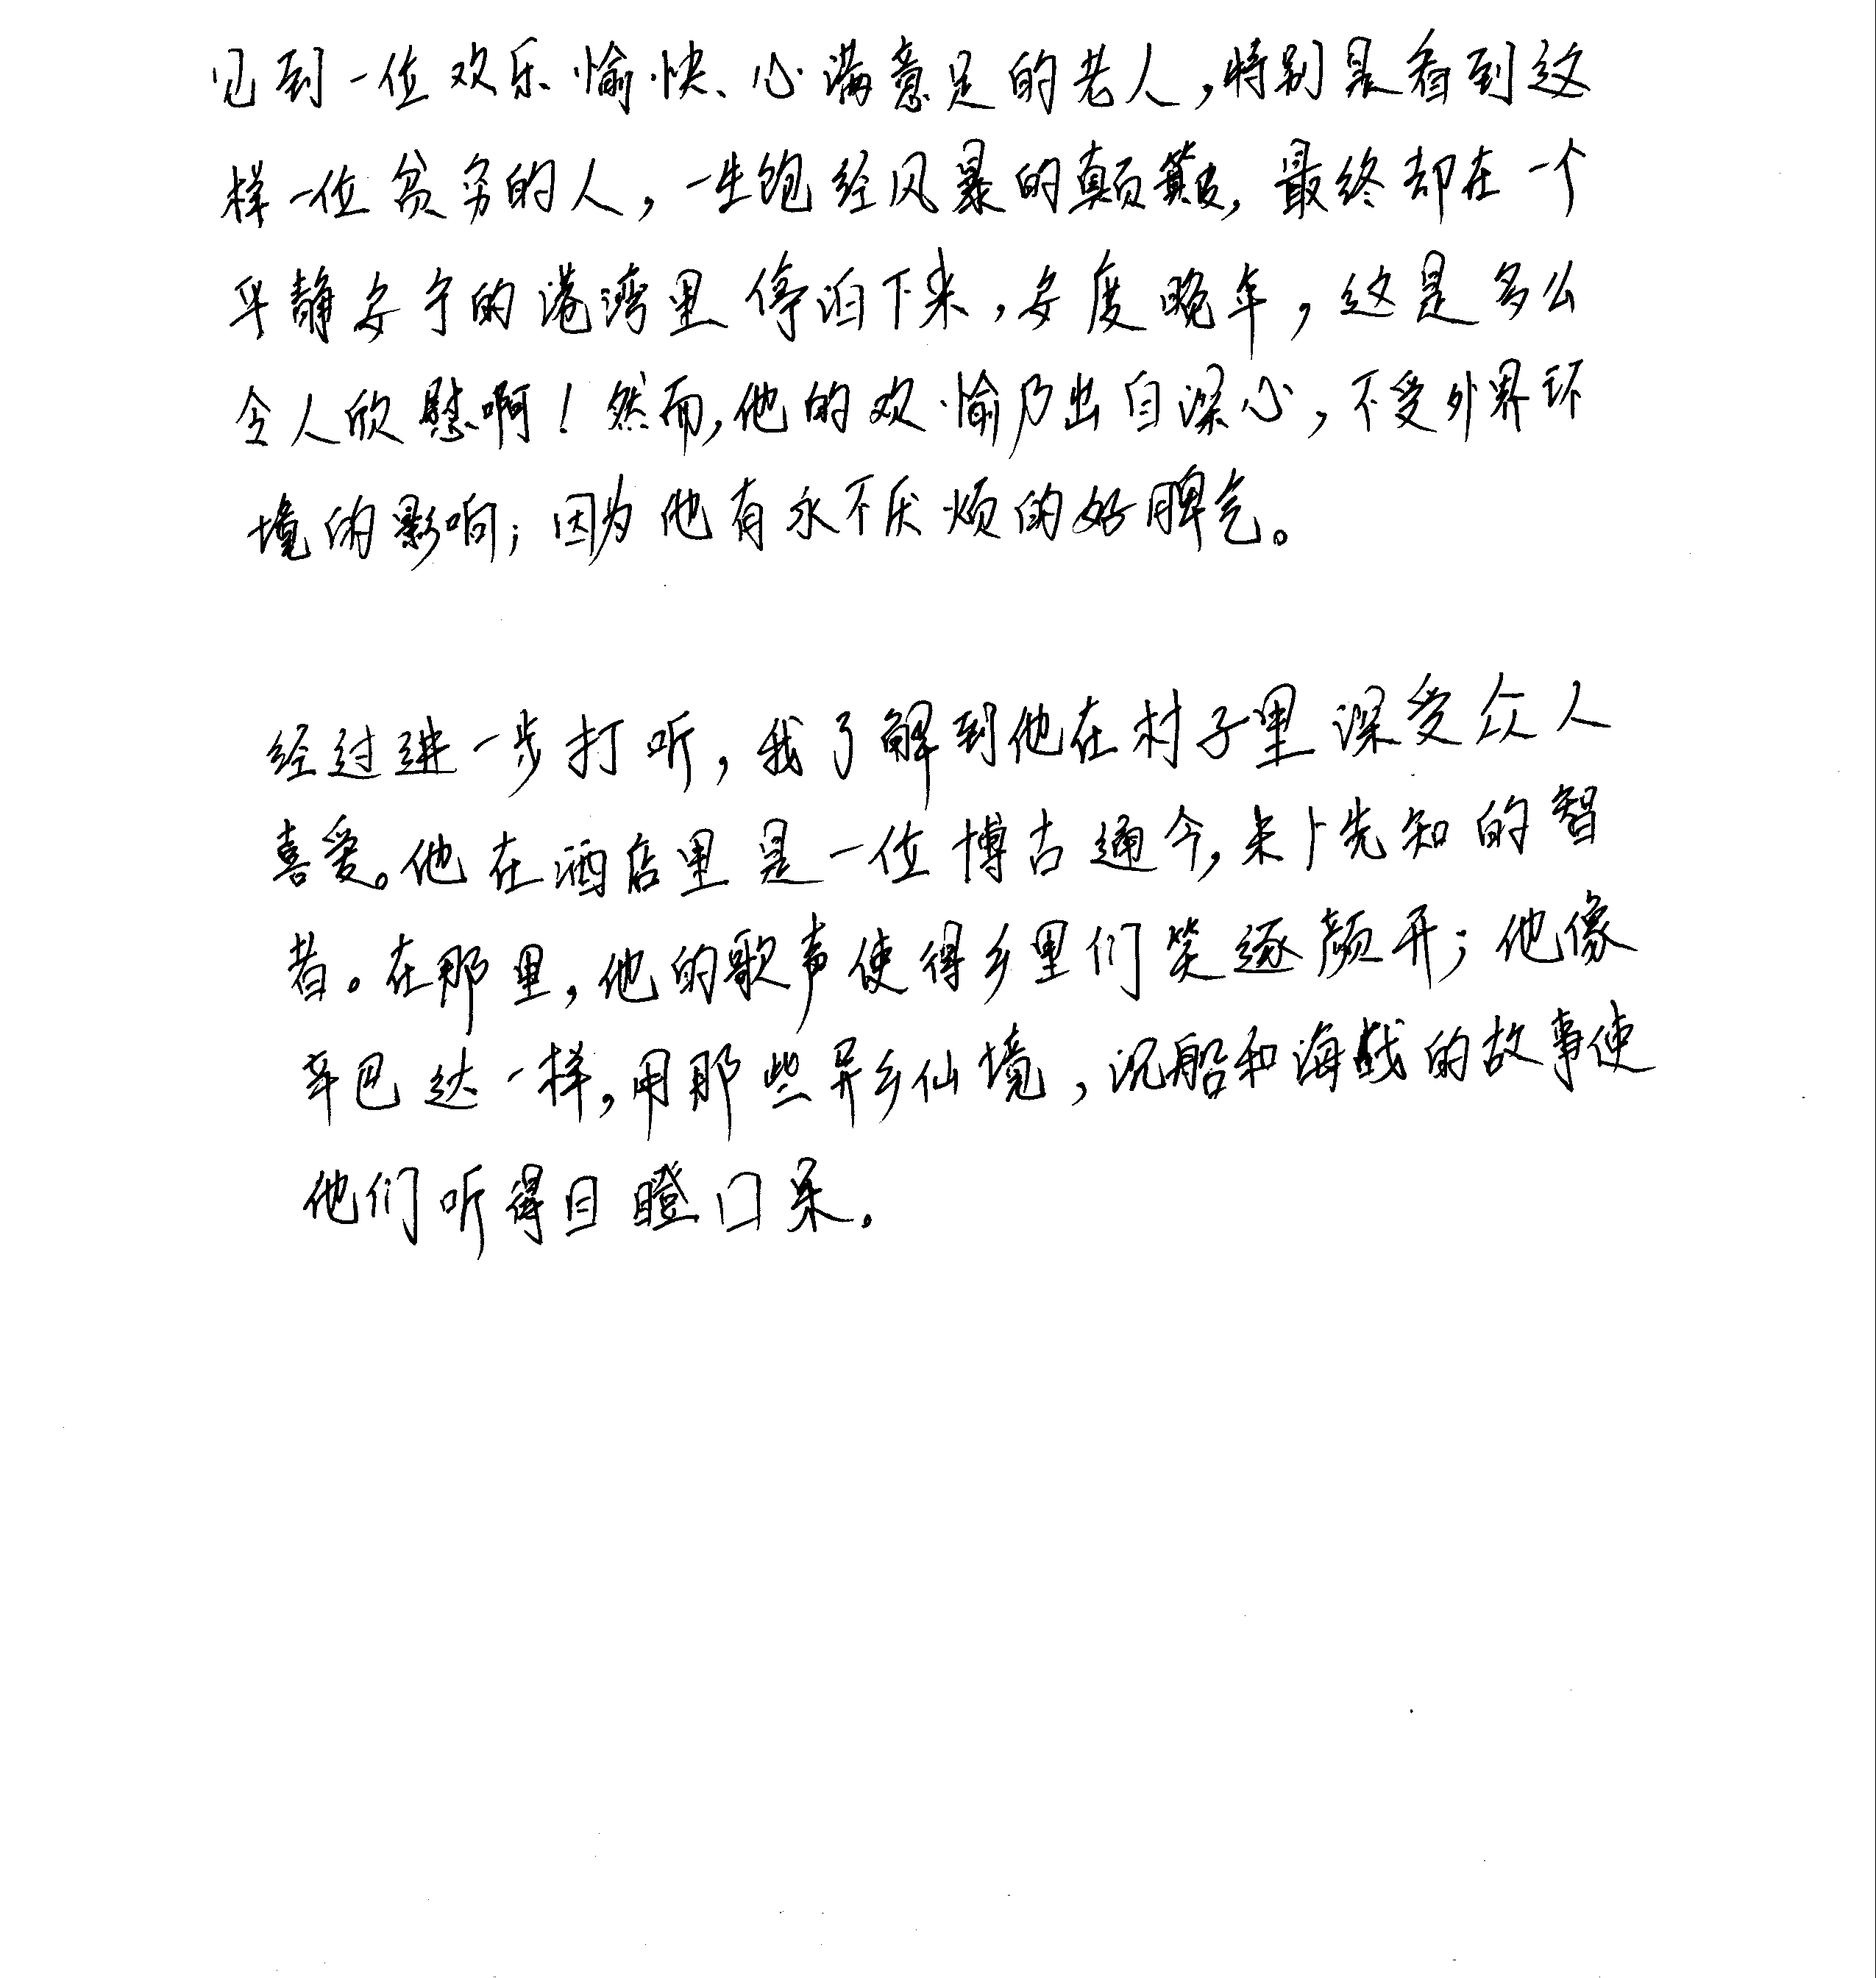 见到一位欢乐愉快、心满意足的老人，特别是看到这
样一位贫穷的人，一生饱经风暴的颠簸，最终却在一个
平静安宁的港湾里停泊下来，安度晚年，这是多么
令人欣慰啊！然而，他的欢愉乃出自深心，不受外界环
境的影响；因为他有永不厌烦的好脾气。
经过进一步打听，我了解到他在村子里深受众人
喜爱。他在酒店里是一位博古通今，未卜先知的智
者。在那里，他的歌声使得乡里们笑逐颜开；他像
辛巴达一样，用那些异乡仙境，沉船和海战的故事使
他们听得目瞪口呆。